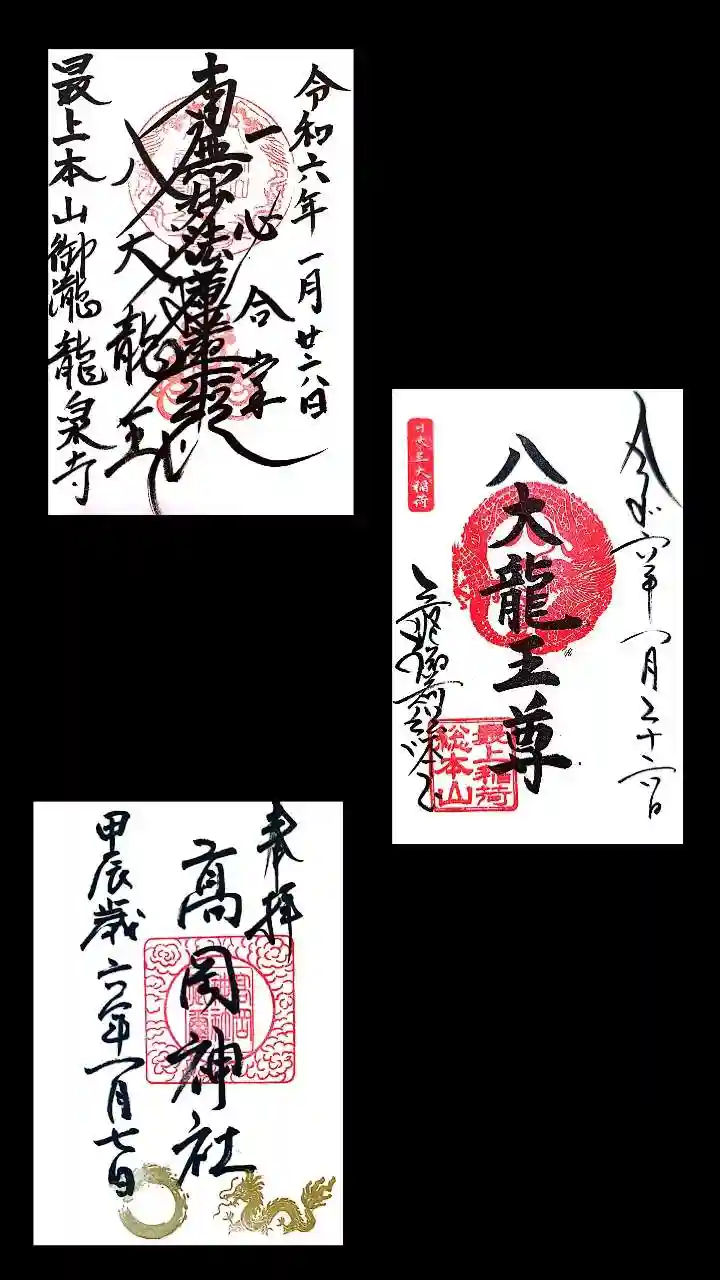 令和六年一月廿六日
一心合掌
南無妙法蓮華経
八大龍王
最上本山御瀧龍泉寺
令和六年一月二十六日
八大龍王尊
日本三大稲荷
最上稲荷総本山
奉拝
高岡神社
甲辰歳六年一月七日